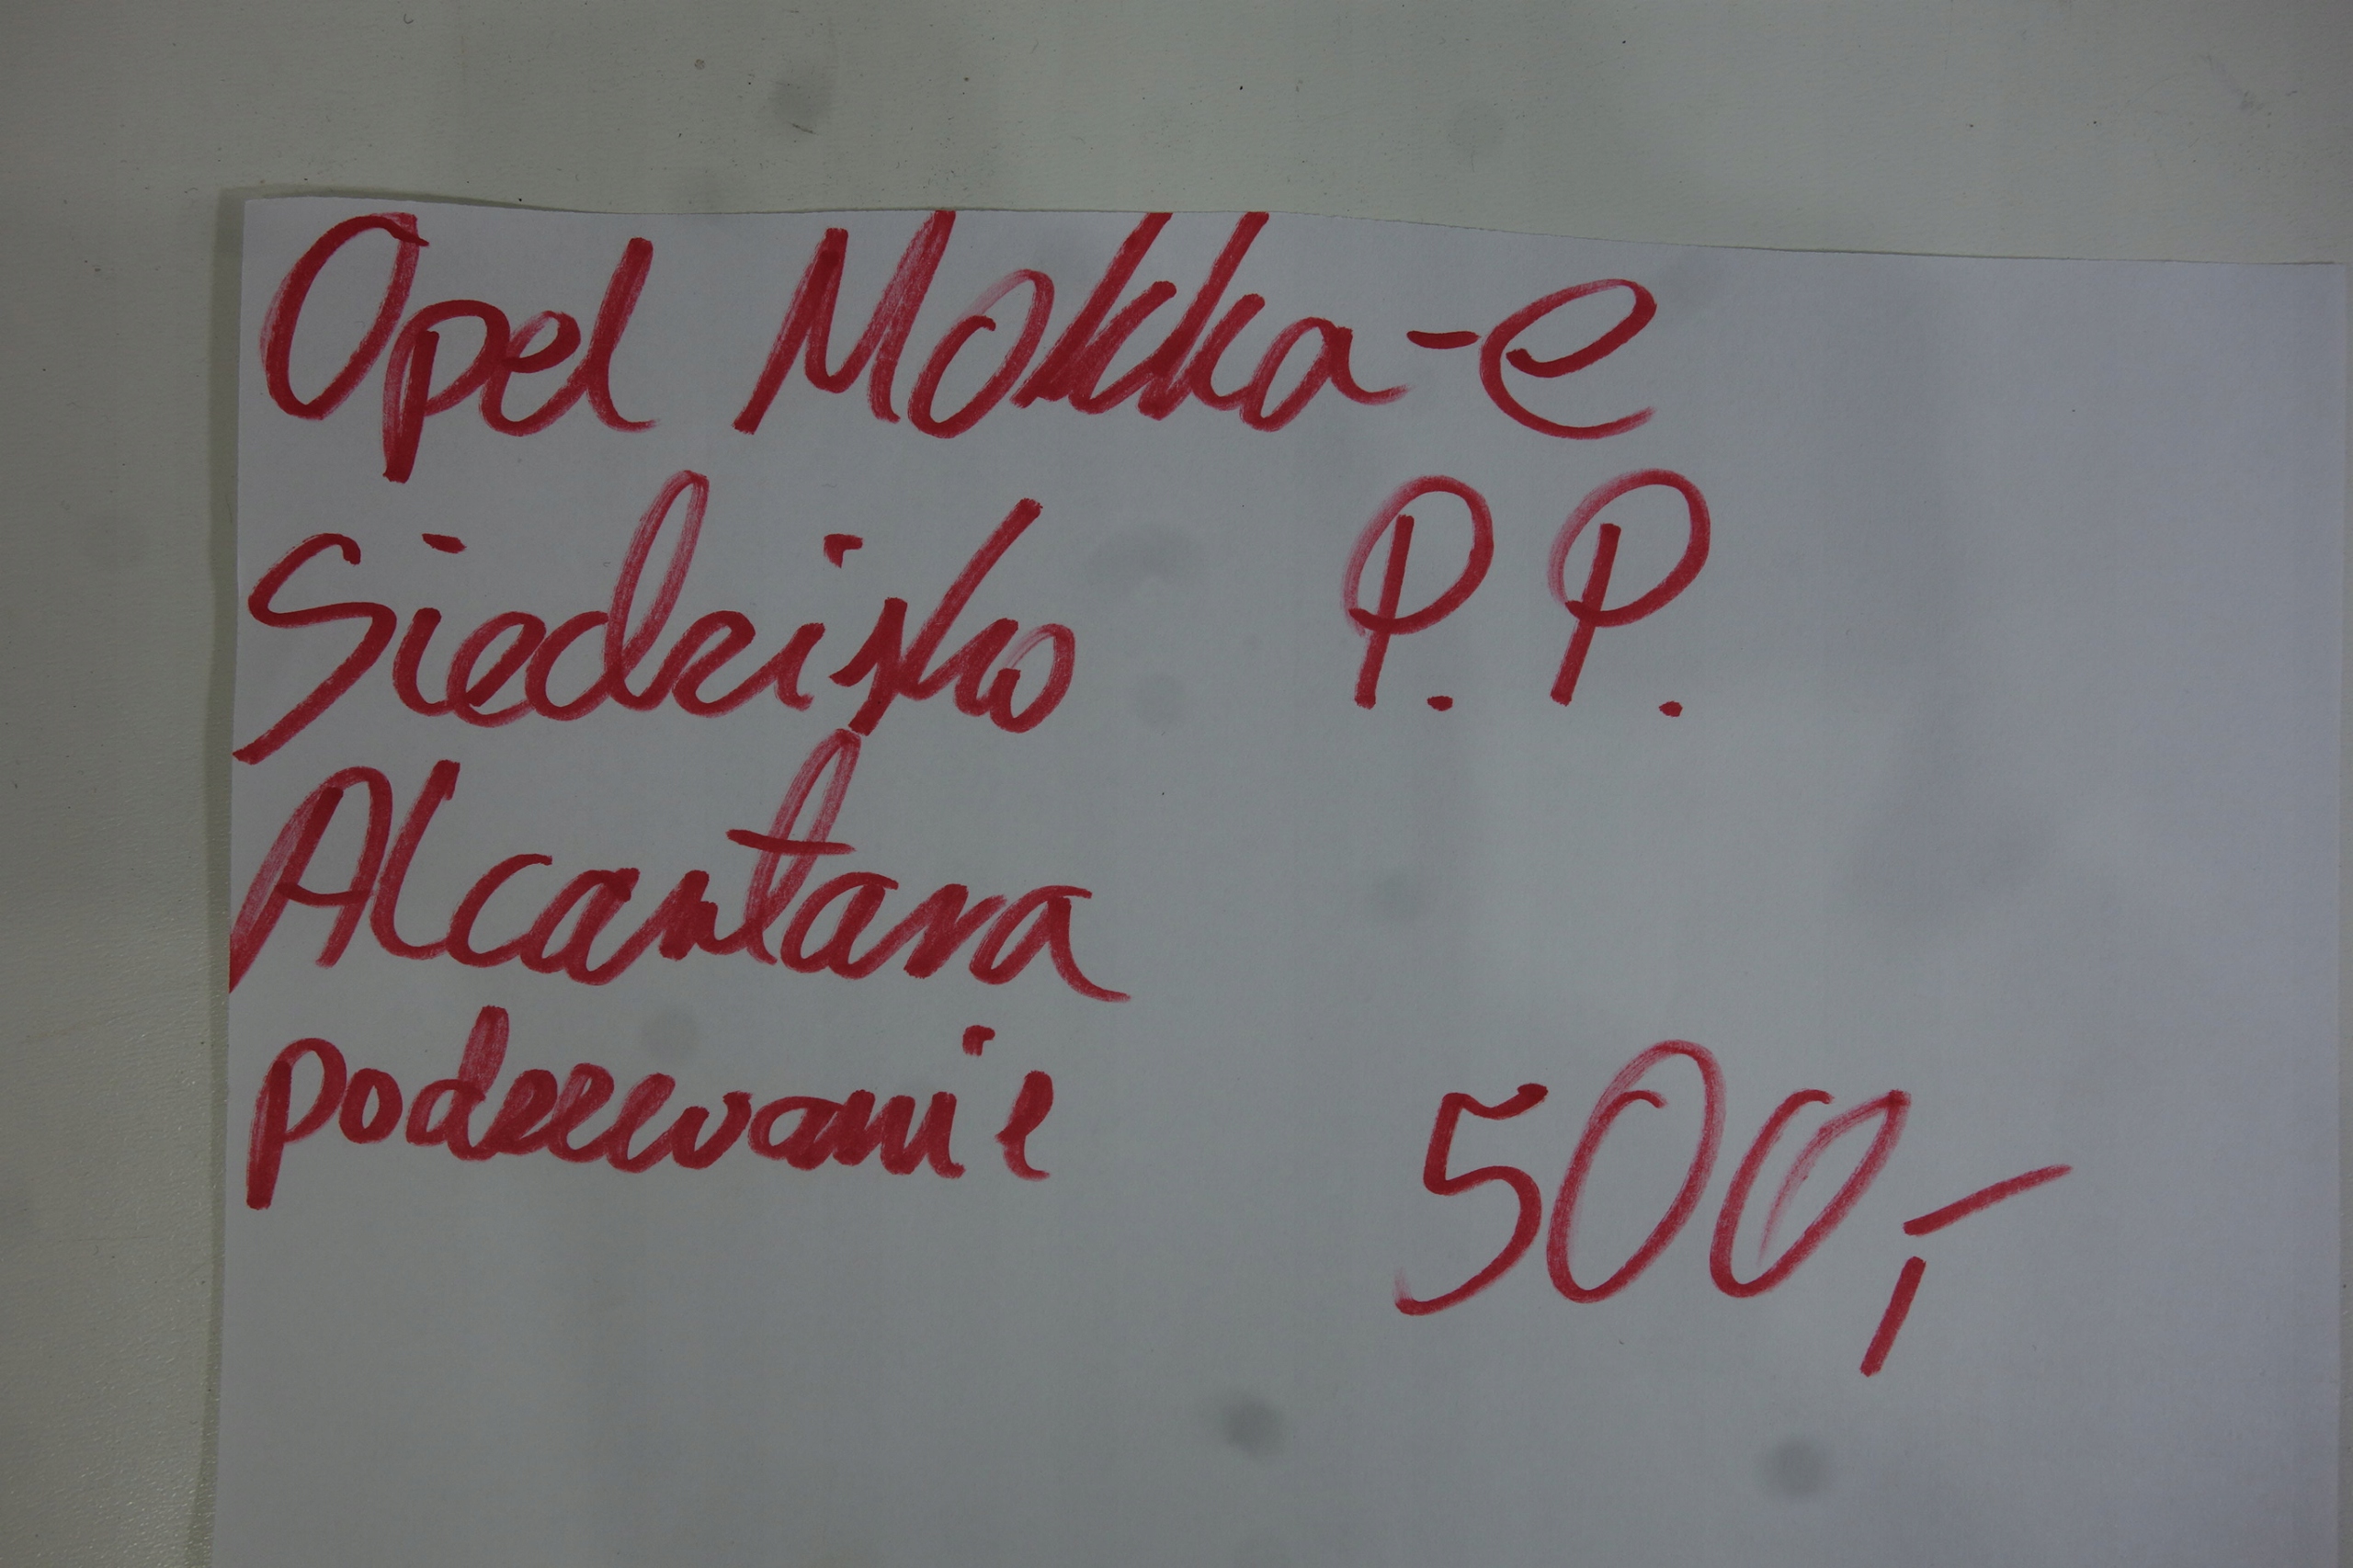 Opel Mokka-e
Siedzisko P.P.
Alcantara
podzewanie
500,-